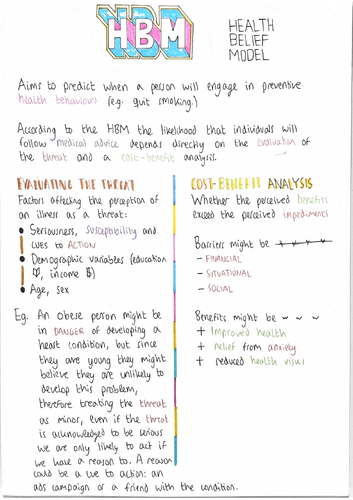 HBM
HEALTH
BELIEF
MODEL
Aims to predict when a person will engage in preventive
health behaviours (e.g. quit smoking.)
According to the HBM the likelihood that individuals will
follow medical advice depends directly on the evaluation of
the threat and a cost-benefit analysis.
EVALUATING THE THREAT
Factors affecting the perception of
an illness as a threat:
• Seriousness, susceptibility and
cues to ACTION
• Demographic variables (education
, income $)
• Age, sex
Eg. An obese person might be
in DANGER of developing a
heart condition, but since
they are young they might
believe they are unlikely to
develop this problem,
therefore treating the threat
as minor, even if the threat
is acknowledged to be serious
we are only likely to act if
we have a reason to. A reason
could be a cue to action: an
ads campaign or a friend with the condition.
COST-BENEFIT ANALYSIS
Whether the perceived benefits
exceed the perceived impediments
Barriers might be
- FINANCIAL
- SITUATIONAL
- SOCIAL
Benefits might be
+ Improved health
+ relief from anxiety
+ reduced health risks